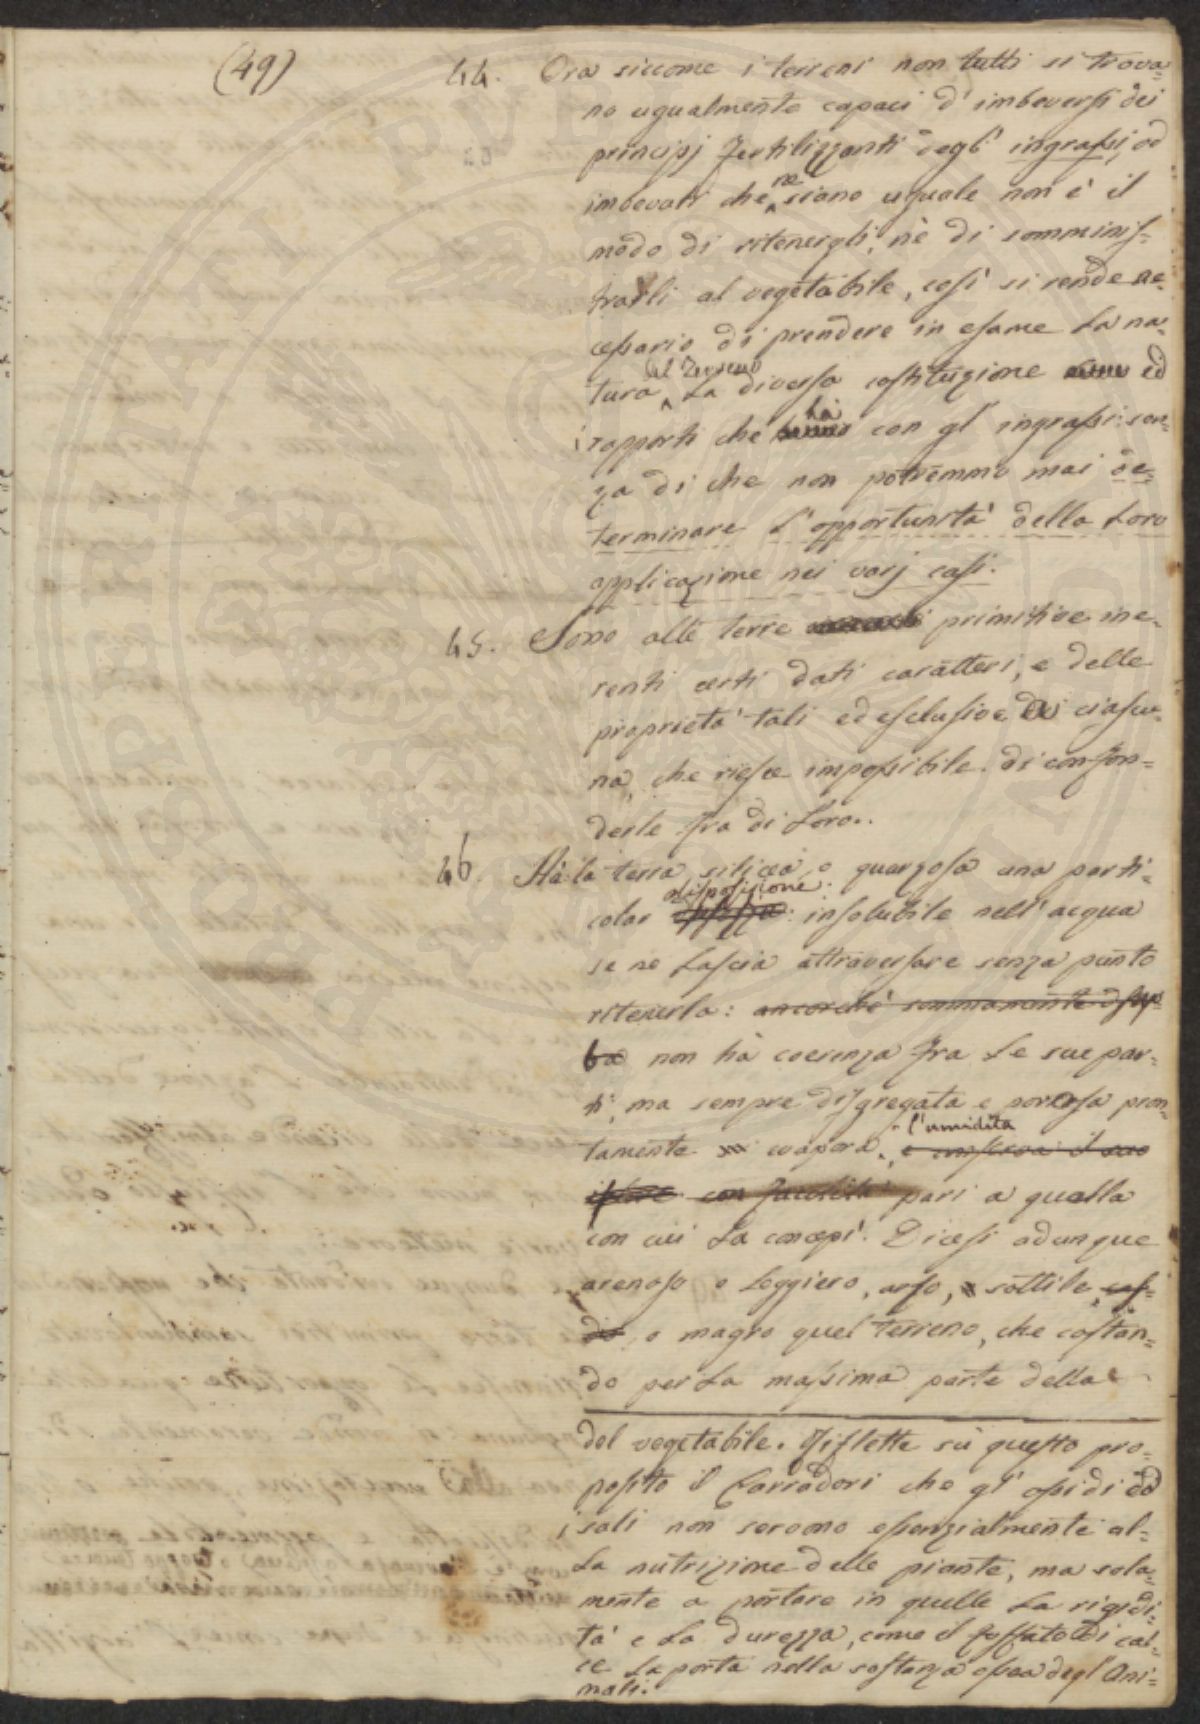 (49)
44. Ora siccome i terreni non tutti si trova-
no ugualmente capaci d'imbeversi dei
principj fertilizzanti degl'ingrassi, od
imbevuti che ne siano uguale non è il
modo di ritenergli, nè di somminis-
trarli al vegetabile, così si rende ne-
cessario di prendere in esame la na-
tura del Terreno, la diversa costituzione ed
i rapporti che hà con gl'ingrassi: sen-
za di che non potremmo mai de-
terminare l'opportunità della loro
applicazione nei varj casi.
45. Sono alle terre primitive ine-
renti certi dati caratteri, e delle
proprietà tali ed esclusive di ciascu-
na, che riesce impossibile di confon-
derle fra di loro.
46. Hà la terra silicea, o quarzosa una parti-
colar disposizione: insolubile nell'acqua
se ne lascia attraversare senza punto
ritenerla: ancorchè sommamente
non hà coerenza fra le sue par-
ti, ma sempre disgregata e porosa pron-
tamente evapora l'umidità, e conserva il suo
con facilità pari a quella
con cui la concepì. Dicesi adunque
arenoso o leggiero, arso, sottile,
o magro quel terreno, che costan-
do per la massima parte della
del vegetabile. Riflette sù questo pro-
posito il Carradori che gl'ossidi ed
i sali non servono essenzialmente al-
la nutrizione delle piante, ma sola-
mente a portare in quelle la rigidi-
tà e la durezza, come il fosfato di cal-
ce la porta nella sostanza ossea degl'Ani-
mali.